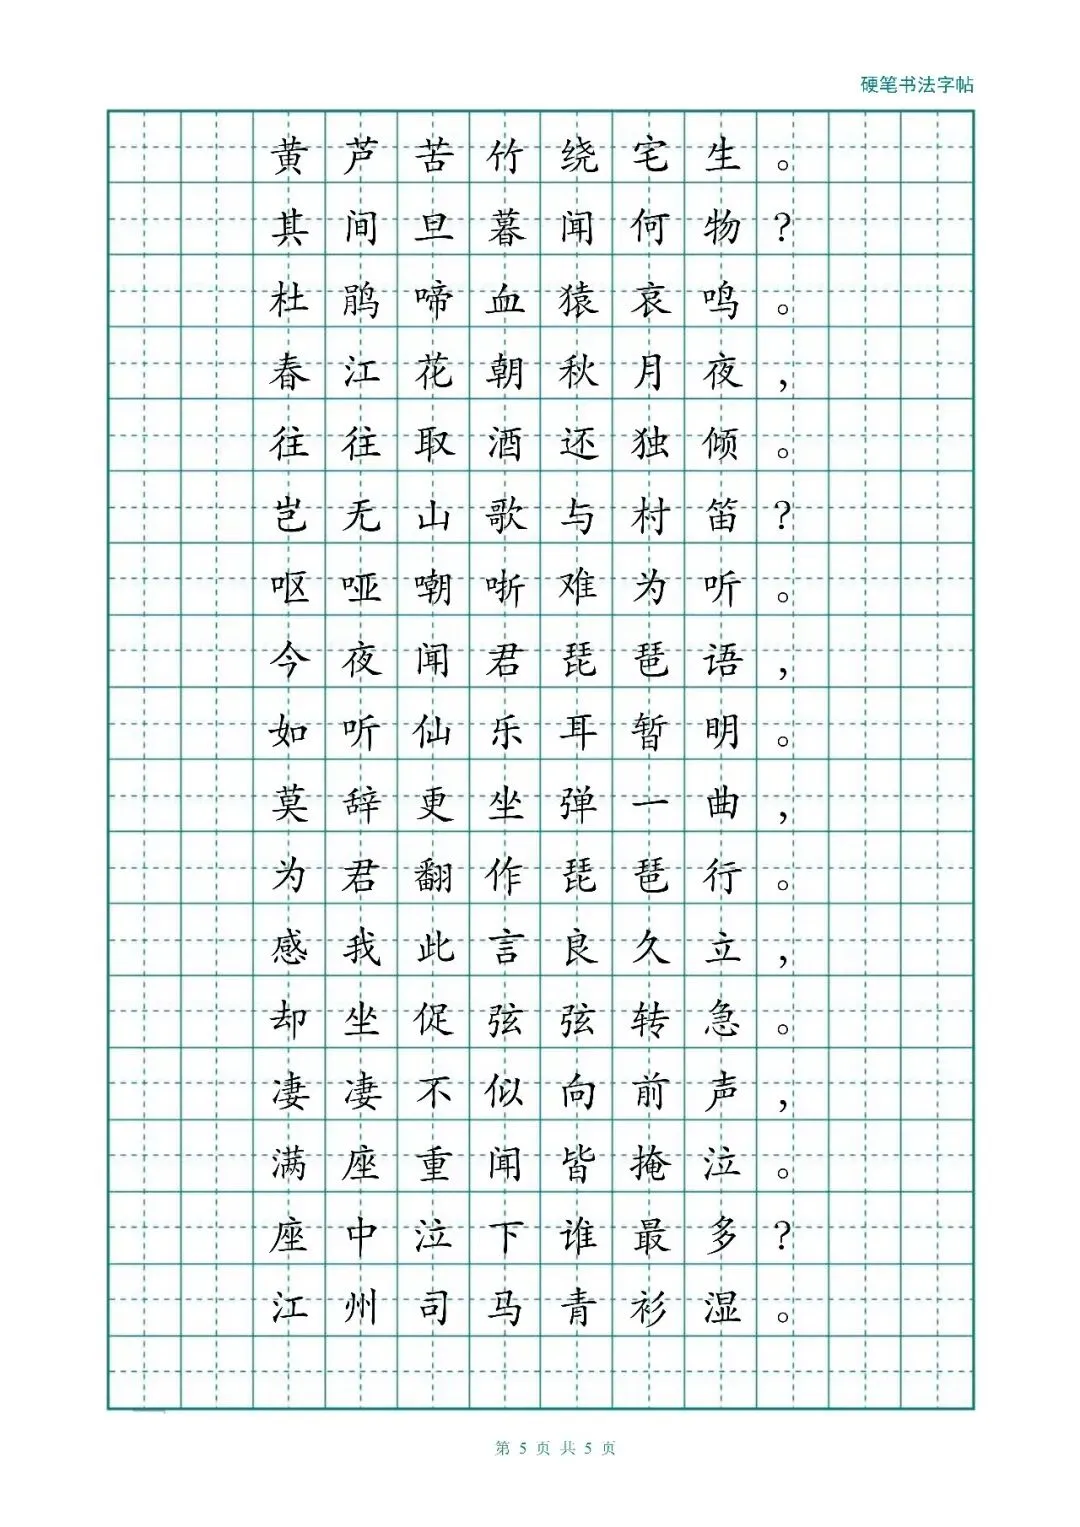 硬笔书法字帖
黄芦苦竹绕宅生。
其间旦暮闻何物?
杜鹃啼血猿哀鸣。
春江花朝秋月夜,
往往取酒还独倾。
岂无山歌与村笛?
呕哑嘲哳难为听。
今夜闻君琵琶语,
如听仙乐耳暂明。
莫辞更坐弹一曲,
为君翻作琵琶行。
感我此言良久立,
却坐促弦弦转急。
凄凄不似向前声,
满座重闻皆掩泣。
座中泣下谁最多?
江州司马青衫湿。
第 5 页 共 5 页